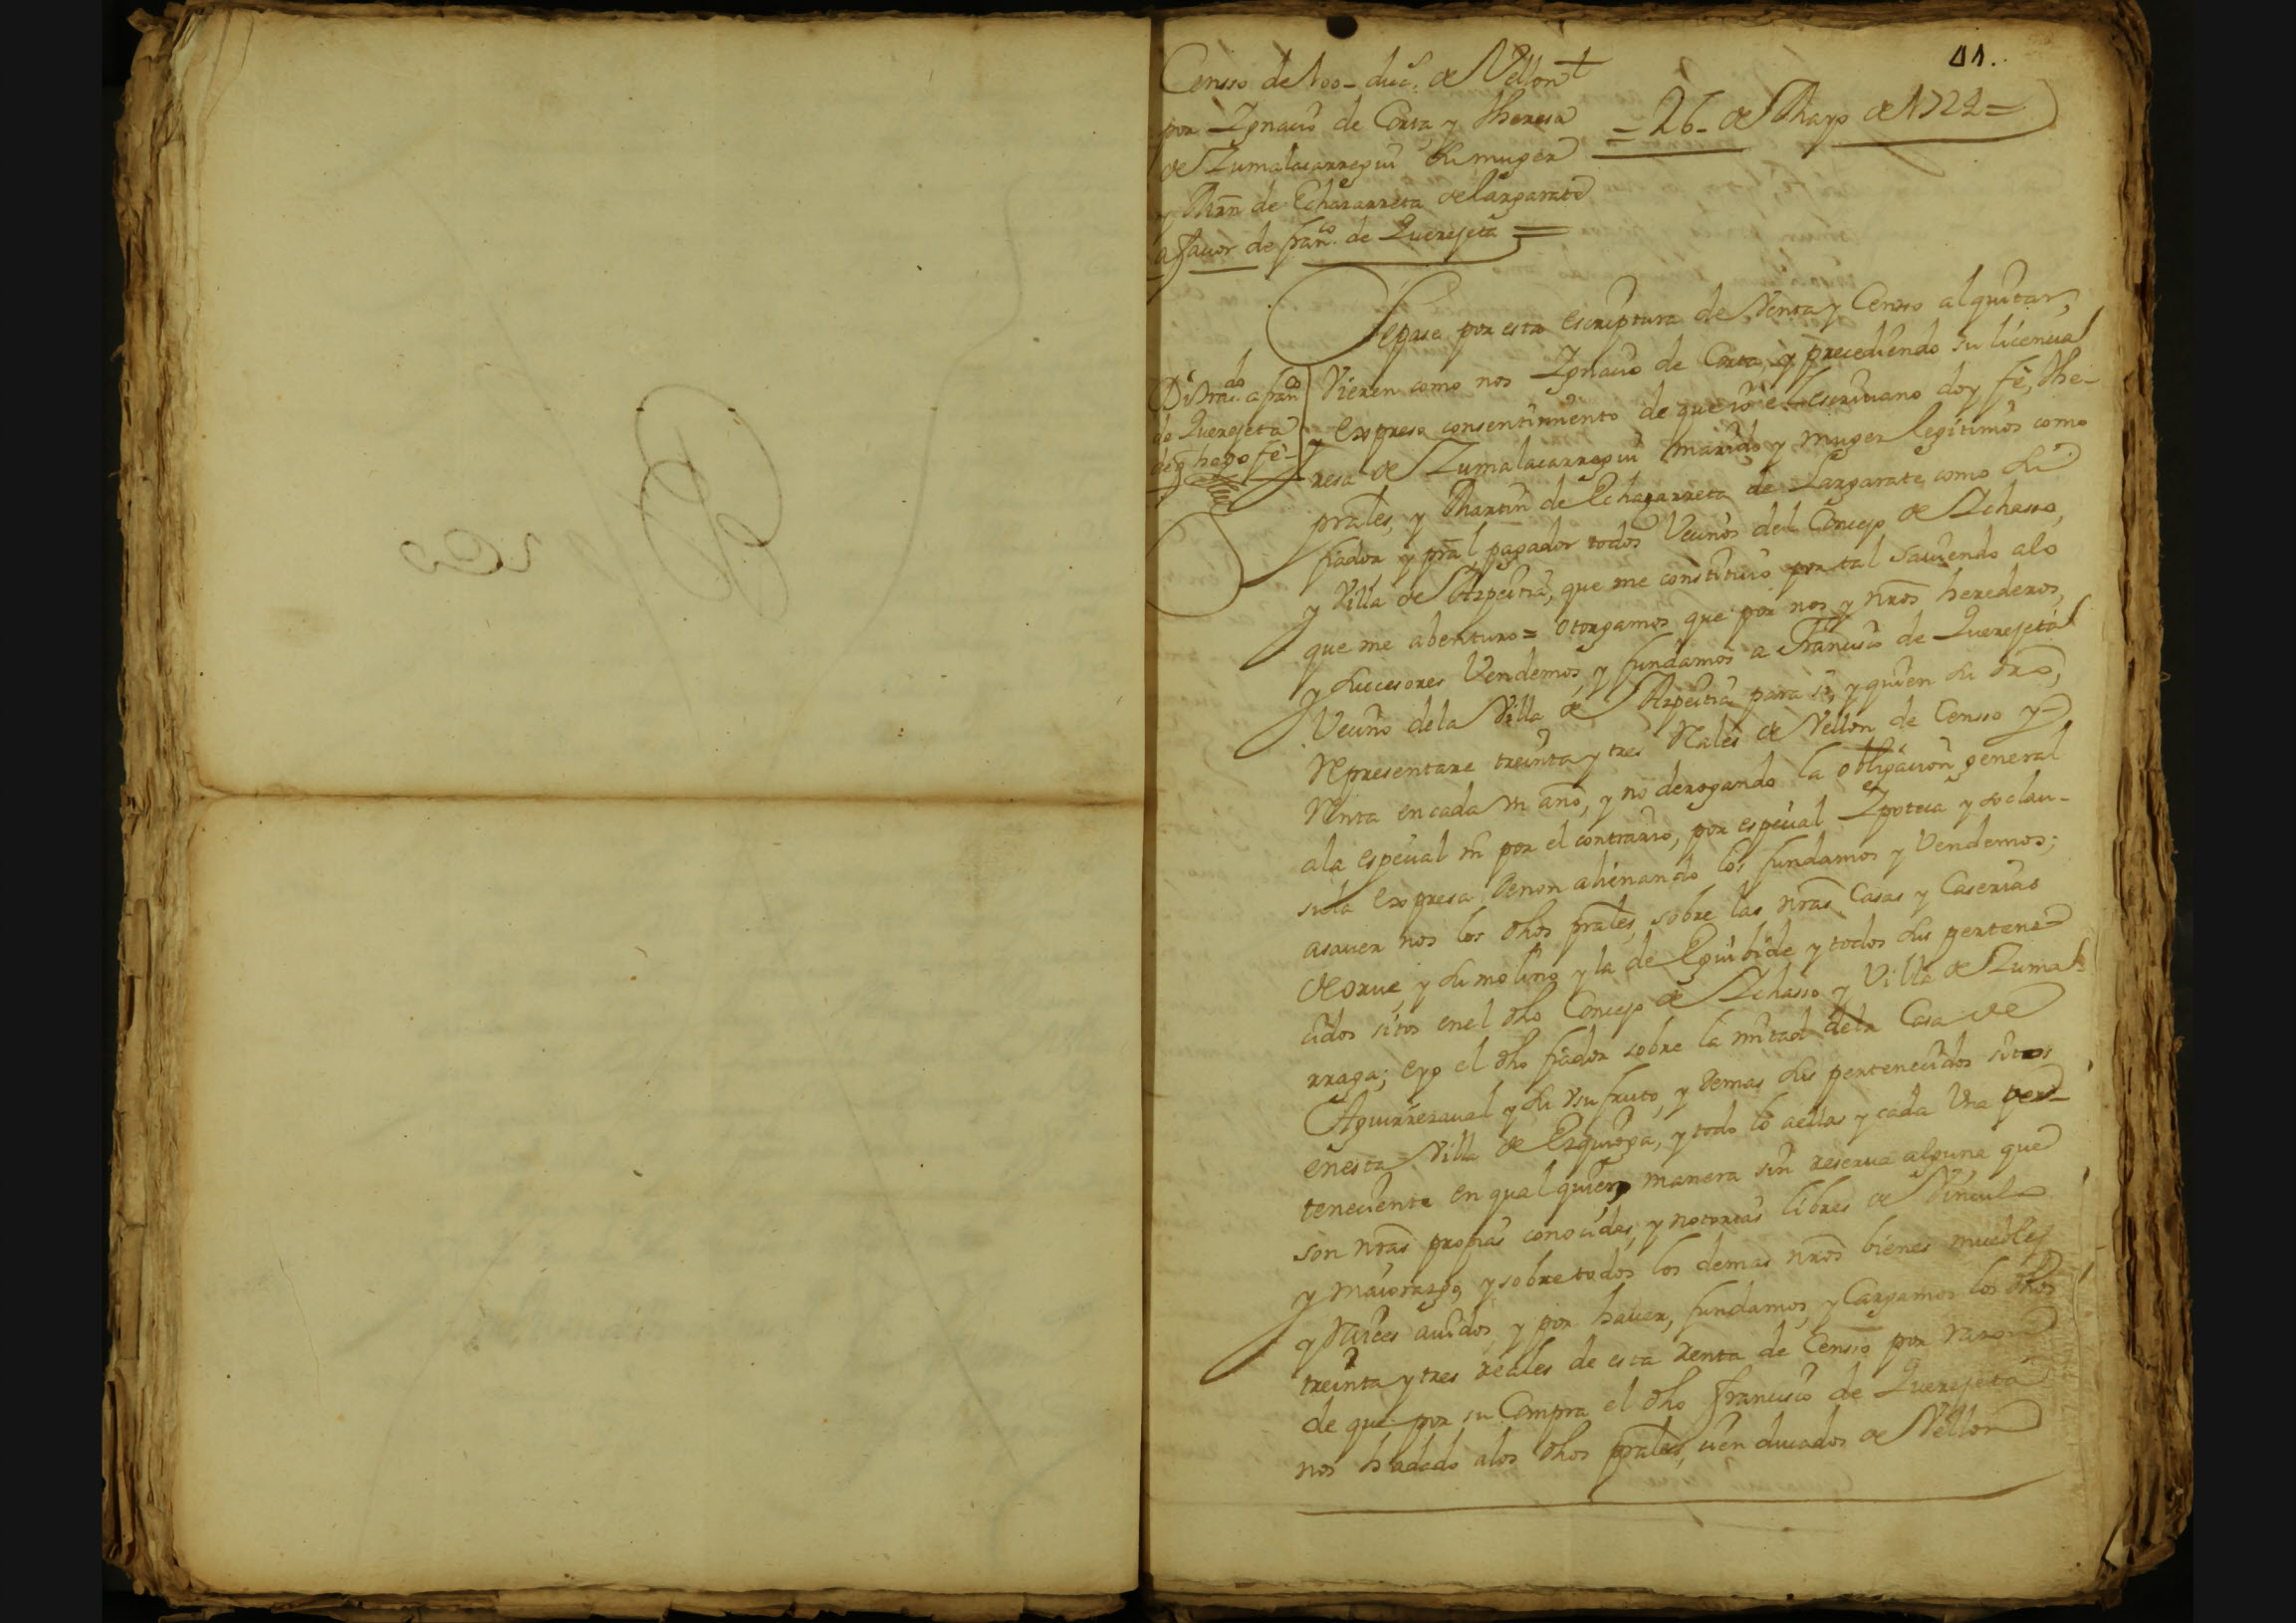 41.
Censso de 100- duc.s de Vellon
por Ygnacio de Corta y Theresa
de Zumalacarregui su muger
y Mrn de Echazarreta de Largarate
a favor de fran.co de Querejeta =
= 26- de Mayo de 1722 =
Sepase por esta escriptura de Venta y Censso al quitar,
Vieren como nos Ygnacio de Corta, y precediendo su licencia
y expreso consentimiento de que io el escriuano doy fe, The-
resa de Zumalacarregui marido y muger legitimos como
prales, y Martin de Echazarreta de Largarate como su
fiador y pral pagador todos Vecinos del Concejo de Ychasso,
y Villa de Azpeitia, que me constituio por tal sauiendo alo
que me abenturo = otorgamos que por nos y nros herederos,
y subcesores Vendemos, y fundamos a Francisco de Querejeta
Vecino dela Villa de Azpeitia para si, y quien su dro,
Representare treinta y tres Rales de Vellon de Censso y
Renta en cada un año, y no derogando la obligacion general
ala especial ni por el contrario, por especial Ypoteca y so clau-
sula expresa de non alienando los fundamos y Vendemos;
asauer nos los dhos prales, sobre las nras Casas y Caserias
de orue, y su molino y la de Eguibide y todos sus pertene-
cidos sitos en el dho Concejo de Ychasso y Villa de Zuma-
rraga; e yo el dho fiador sobre la mitad dela Casa de
Aguirrezaual y su Vsufruto, y demas sus pertenecidos sitos
en esta Villa de Ezquioga, y todo lo aellas y cada Vna per-
teneciente en qualquier manera sin reserua alguna que
son nras propias conocidas, y notorias libres de Vinculo
y maiorazgo, y sobre todos los demas nros bienes muebles
y Raices auidos, y por hauer, fundamos, y Cargamos los dhos
treinta y tres reales de esta renta de Censso por razon
de que por su Compra el dho Francisco de Querejeta
nos ha dado alos dhos prales, cien ducados de Vellon
Di tras.do a fran.co
de Querejeta
de q hago fe-